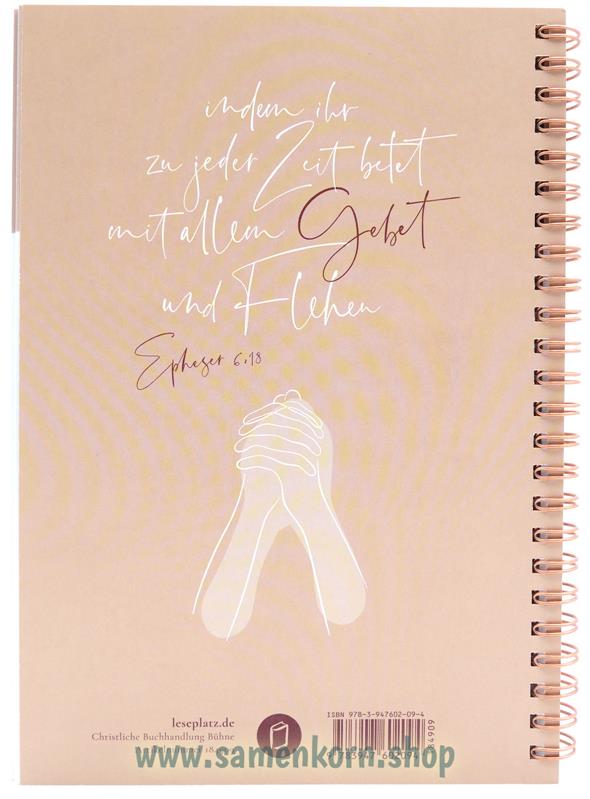 indem ihr
zu jeder Zeit betet
mit allem Gebet
und Flehen
Epheser 6,18
leseplatz.de
Christliche Buchhandlung Bühne
ISBN 978-3-947602-09-4
84909
9 783947 602094
www.samenkorn.shop